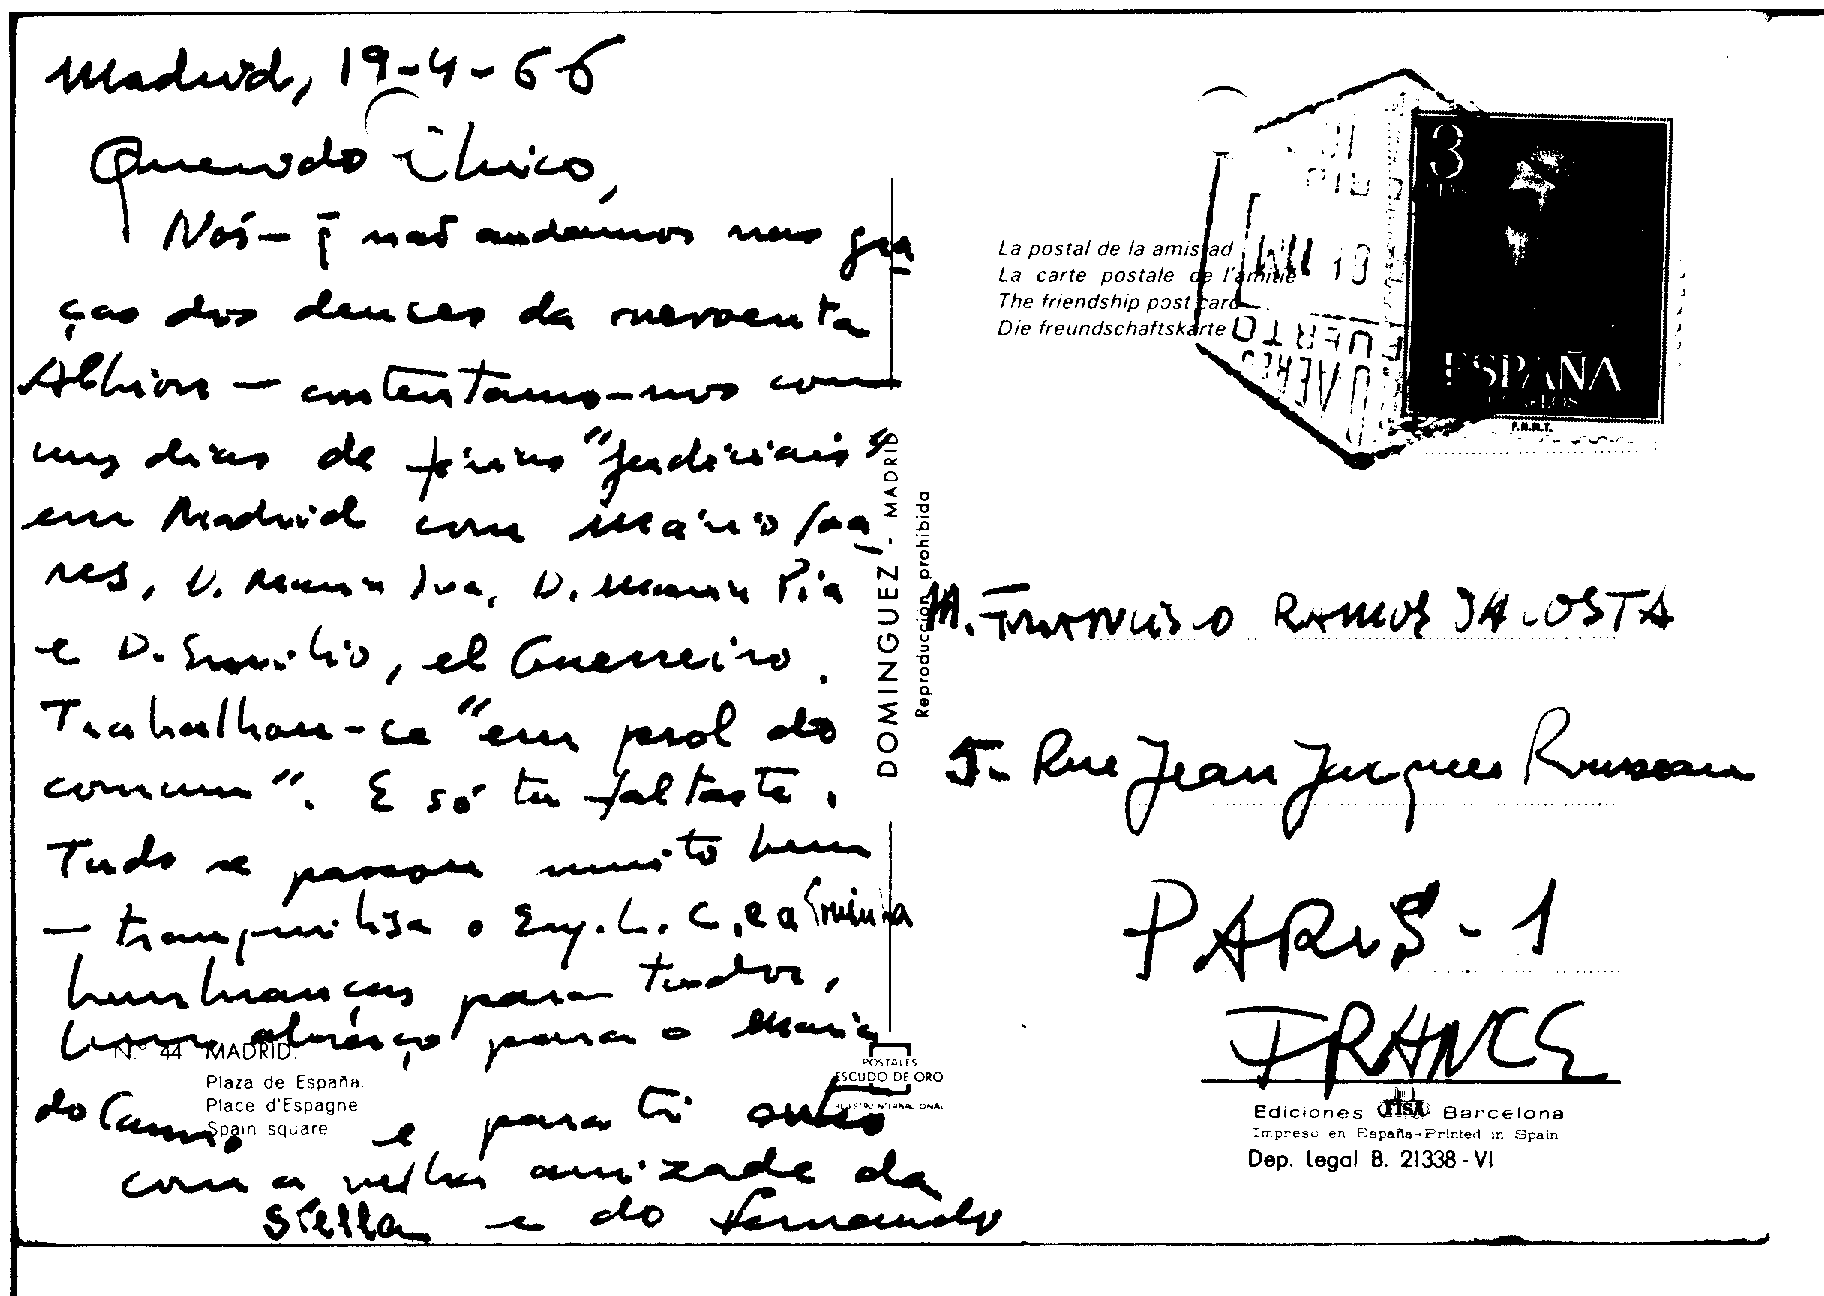 Madrid, 19-4-66
Querido Chico,
Nós - q̃ não andámos nas gra
ças dos deuses da nevoenta
Albion - contentamo-nos com
uns dias de férias "judiciais"
em Madrid com Mário Soa
res, D. Maria Iva, D. Maria Pia
e D. Emilio, el Guerreiro.
Trabalhou-se "em prol do
comum". E só tu faltaste.
Tudo se passou muito bem
- tranquilisa o Eng. L. C. e a
lembranças para todos,
bom abraço para o Mário
do Carmo e para ti outro
com a velha amizade da
Stella e do Fernando
Nº 44 MADRID.
Plaza de España.
Place d'Espagne
Spain square
DOMINGUEZ - MADRID
Reproducción prohibida
POSTALES
ESCUDO DE ORO
La postal de la amistad
La carte postale de l'amitié
The friendship post card
Die freundschaftskarte
3
ESPAÑA
F.N.M.T.
M. FRANCISCO RAMOS DA COSTA
5- Rue Jean Jacques Rousseau
PARIS - 1
FRANCE
Ediciones FISA Barcelona
Impreso en España-Printed in Spain
Dep. Legal B. 21338 - VI